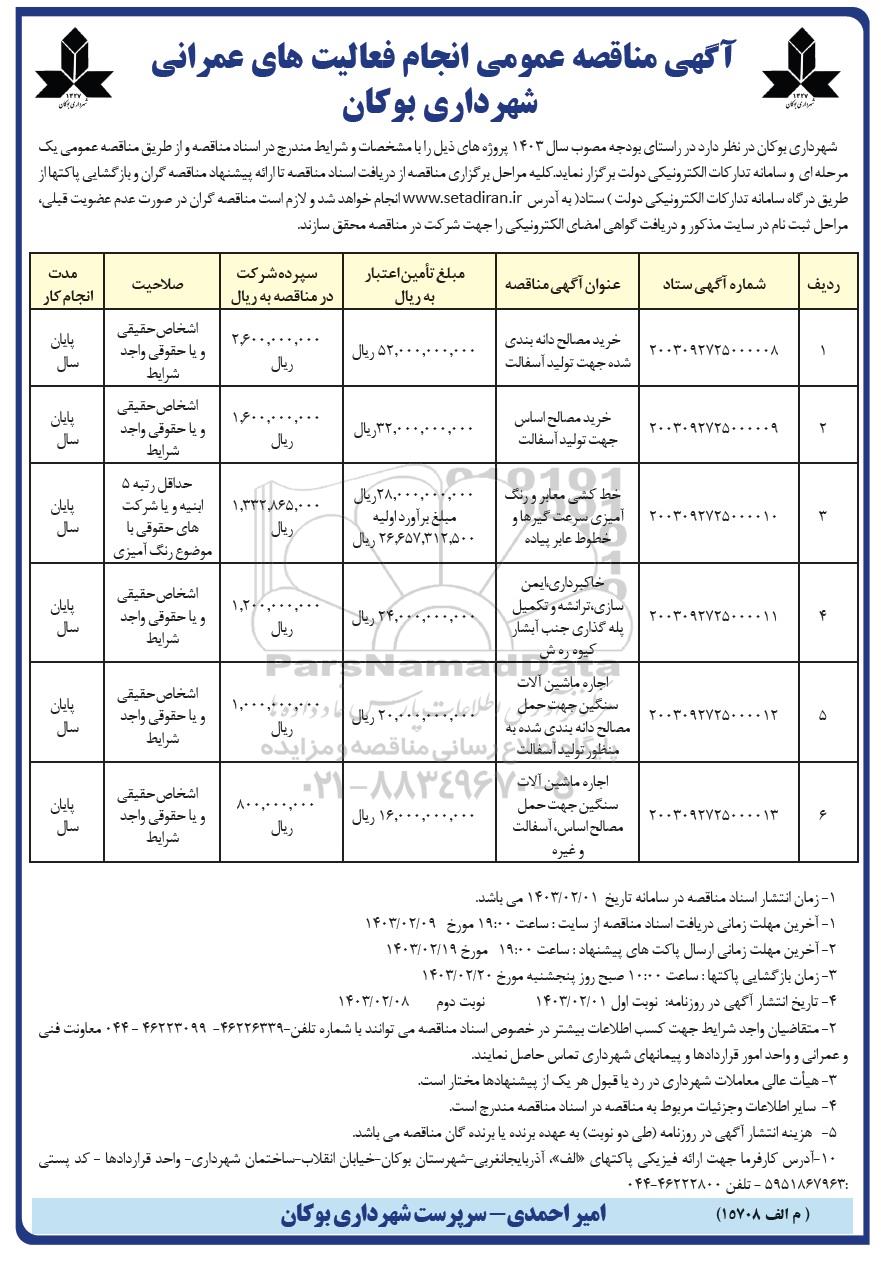 آگهی مناقصه عمومی انجام فعالیت های عمرانی
شهرداری بوکان
۱۳۲۷
شهرداری بوکان
۱۳۲۷
شهرداری بوکان
شهرداری بوکان در نظر دارد در راستای بودجه مصوب سال ۱۴۰۳ پروژه های ذیل را با مشخصات و شرایط مندرج در اسناد مناقصه و از طریق مناقصه عمومی یک
مرحله ای و سامانه تدارکات الکترونیکی دولت برگزار نماید.کلیه مراحل برگزاری مناقصه از دریافت اسناد مناقصه تا ارائه پیشنهاد مناقصه گران و بازگشایی پاکتها از
طریق درگاه سامانه تدارکات الکترونیکی دولت ) ستاد( به آدرس www.setadiran.ir انجام خواهد شد و لازم است مناقصه گران در صورت عدم عضویت قبلی،
مراحل ثبت نام در سایت مذکور و دریافت گواهی امضای الکترونیکی را جهت شرکت در مناقصه محقق سازند.
ردیف
شماره آگهی ستاد
عنوان آگهی مناقصه
مبلغ تأمین اعتبار
به ریال
سپرده شرکت
در مناقصه به ریال
صلاحیت
مدت
انجام کار
۱
۲۰۰۳۰۹۲۷۲۵۰۰۰۰۰۸
خرید مصالح دانه بندی
شده جهت تولید آسفالت
۵۲,۰۰۰,۰۰۰,۰۰۰ ریال
۲,۶۰۰,۰۰۰,۰۰۰
ریال
اشخاص حقیقی
و یا حقوقی واجد
شرایط
پایان
سال
۲
۲۰۰۳۰۹۲۷۲۵۰۰۰۰۰۹
خرید مصالح اساس
جهت تولید آسفالت
۳۲,۰۰۰,۰۰۰,۰۰۰ریال
۱,۶۰۰,۰۰۰,۰۰۰
ریال
اشخاص حقیقی
و یا حقوقی واجد
شرایط
پایان
سال
۳
۲۰۰۳۰۹۲۷۲۵۰۰۰۰۱۰
خط کشی معابر و رنگ
آمیزی سرعت گیرها و
خطوط عابر پیاده
۲۸,۰۰۰,۰۰۰,۰۰۰ریال
مبلغ برآورد اولیه
۲۶,۶۵۷,۳۱۲,۵۰۰ ریال
۱,۳۳۲,۸۶۵,۰۰۰
ریال
حداقل رتبه ۵
ابنیه و یا شرکت
های حقوقی با
موضوع رنگ آمیزی
پایان
سال
۴
۲۰۰۳۰۹۲۷۲۵۰۰۰۰۱۱
خاکبرداری،ایمن
سازی،ترانشه و تکمیل
پله گذاری جنب آبشار
کیوه ره ش
۲۴,۰۰۰,۰۰۰,۰۰۰ ریال
۱,۲۰۰,۰۰۰,۰۰۰
ریال
اشخاص حقیقی
و یا حقوقی واجد
شرایط
پایان
سال
۵
۲۰۰۳۰۹۲۷۲۵۰۰۰۰۱۲
اجاره ماشین آلات
سنگین جهت حمل
مصالح دانه بندی شده به
منظور تولید آسفالت
۲۰,۰۰۰,۰۰۰,۰۰۰ ریال
۱,۰۰۰,۰۰۰,۰۰۰
ریال
اشخاص حقیقی
و یا حقوقی واجد
شرایط
پایان
سال
۶
۲۰۰۳۰۹۲۷۲۵۰۰۰۰۱۳
اجاره ماشین آلات
سنگین جهت حمل
مصالح اساس، آسفالت
و غیره
۱۶,۰۰۰,۰۰۰,۰۰۰ ریال
۸۰۰,۰۰۰,۰۰۰
ریال
اشخاص حقیقی
و یا حقوقی واجد
شرایط
پایان
سال
ParsNamadData
پایگاه اطلاع رسانی مناقصه و مزایده
۰۲۱-۸۸۳۴۹۶۷۰-۵
۱- زمان انتشار اسناد مناقصه در سامانه تاریخ ۱۴۰۳/۰۲/۰۱ می باشد.
۱- آخرین مهلت زمانی دریافت اسناد مناقصه از سایت : ساعت ۱۹:۰۰ مورخ ۱۴۰۳/۰۲/۰۹
۲- آخرین مهلت زمانی ارسال پاکت های پیشنهاد : ساعت ۱۹:۰۰ مورخ ۱۴۰۳/۰۲/۱۹
۳- زمان بازگشایی پاکتها : ساعت ۱۰:۰۰ صبح روز پنجشنبه مورخ ۱۴۰۳/۰۲/۲۰
۴- تاریخ انتشار آگهی در روزنامه: نوبت اول ۱۴۰۳/۰۲/۰۱ نوبت دوم ۱۴۰۳/۰۲/۰۸
۲- متقاضیان واجد شرایط جهت کسب اطلاعات بیشتر در خصوص اسناد مناقصه می توانند با شماره تلفن-۴۶۲۲۶۳۳۹- ۴۶۲۲۳۰۹۹ - ۰۴۴ معاونت فنی
و عمرانی و واحد امور قراردادها و پیمانهای شهرداری تماس حاصل نمایند.
۳- هیأت عالی معاملات شهرداری در رد یا قبول هر یک از پیشنهادها مختار است.
۴- سایر اطلاعات وجزئیات مربوط به مناقصه در اسناد مناقصه مندرج است.
۵- هزینه انتشار آگهی در روزنامه (طی دو نوبت) به عهده برنده یا برنده گان مناقصه می باشد.
۱۰-آدرس کارفرما جهت ارائه فیزیکی پاکتهای «الف»، آذربایجانغربی-شهرستان بوکان-خیابان انقلاب-ساختمان شهرداری- واحد قراردادها - کد پستی
:۵۹۵۱۸۶۷۹۶۳ - تلفن ۴۶۲۲۲۸۰۰-۰۴۴
امیر احمدی- سرپرست شهرداری بوکان
( م الف ۱۵۷۰۸)